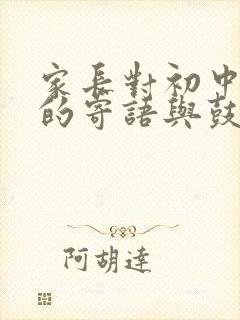 家長對初中
的寄語與鼓
阿胡達